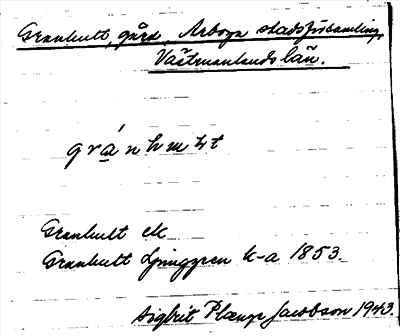 Granhult, gård, Arboga stadsförsamling,
Västmanlands län.
gránhmlt
Granhult ek
Granhult Ljunggren k-a 1853.
Sigbrit Plænge Jacobson 1943.